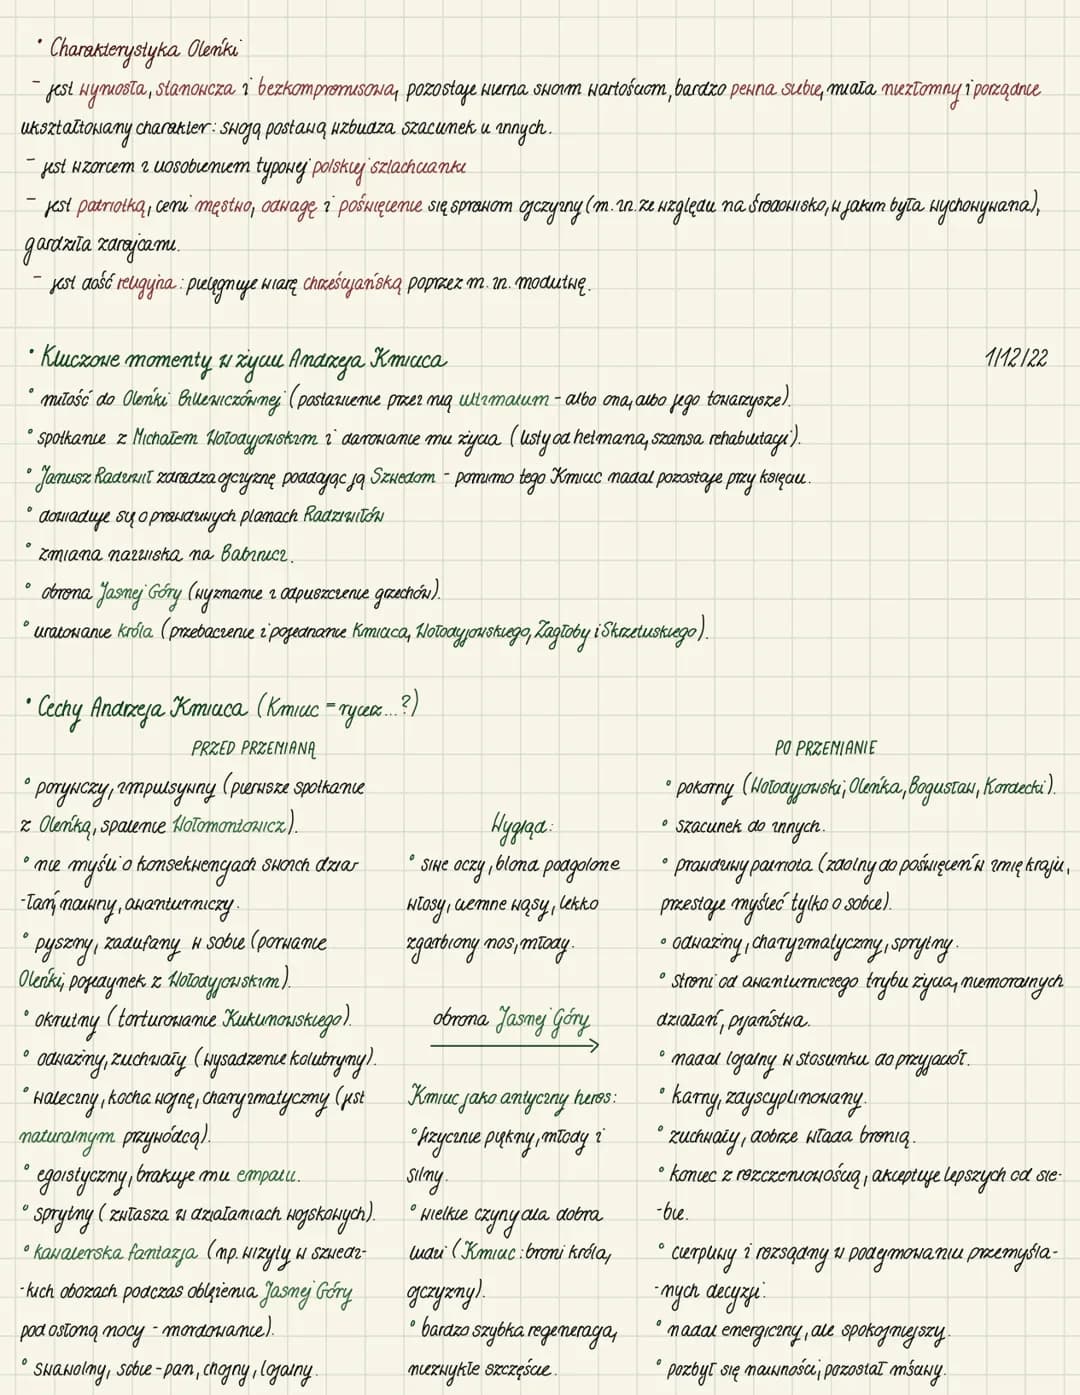 • Charakterystyka Oleńki
- jest wyniosła, stanowcza i bezkompromisowa, pozostaje wierna swoim wartościom, bardzo pewna siebie, miała niezłomny i porządnie
ukształtowany charakter: swoją postawą wzbudza szacunek u innych.
- jest wzorcem i uosobieniem typowej polskiej szlachcianki
- jest patriotką, ceni męstwo, odwagę i poświęcenie się sprawom ojczyzny (m.in. ze względu na środowisko, w jakim była wychowywana),
gardziła zdrajcami.
- jest dość religijna: pielęgnuje wiarę chrześcijańską poprzez m.in. modlitwę.
• Kluczowe momenty w życiu Andrzeja Kmicica
1/12/22
° miłość do Oleńki Billewiczównej (postawienie przez nią ultimatum - albo ona, albo jego towarzysze).
° spotkanie z Michałem Wołodyjowskim i darowanie mu życia (listy od hetmana, szansa rehabilitacji).
° Janusz Radziwiłł zdradza ojczyznę poddając ją Szwedom - pomimo tego Kmicic nadal pozostaje przy księciu.
° dowiaduje się o prawdziwych planach Radziwiłłów
° zmiana nazwiska na Babinicz.
° obrona Jasnej Góry (wyznanie i odpuszczenie grzechów).
° uratowanie króla (przebaczenie i pojednanie Kmicica, Wołodyjowskiego, Zagłoby i Skrzetuskiego).
• Cechy Andrzeja Kmicica (Kmicic = rycerz...?)
PRZED PRZEMIANĄ
° porywczy, impulsywny (pierwsze spotkanie
z Oleńką, spalenie Wołomontowicz).
° nie myśli o konsekwencjach swoich dzia-
-łań, naiwny, awanturniczy.
° pyszny, zadufany w sobie (porwanie
Oleńki, pojedynek z Wołodyjowskim).
° okrutny (torturowanie Kuklinowskiego).
° odważny, zuchwały (wysadzenie kolubryny).
° waleczny, kocha wojnę, charyzmatyczny (jest
naturalnym przywódcą).
° egoistyczny, brakuje mu empatii.
° sprytny (zwłaszcza w działaniach wojskowych).
° kawalerska fantazja (np. wizyty w szwedz-
-kich obozach podczas oblężenia Jasnej Góry
pod osłoną nocy - mordowanie).
° swawolny, sobie-pan, chojny, lojalny.
Wygląd:
° siwe oczy, blond podgolone
włosy, ciemne wąsy, lekko
zgarbiony nos, młody.
obrona Jasnej Góry
Kmicic jako antyczny heros:
° fizycznie piękny, młody i
silny.
° wielkie czyny dla dobra
ludzi (Kmicic: broni króla,
ojczyzny).
° bardzo szybka regeneracja,
niezwykłe szczęście.
PO PRZEMIANIE
° pokorny (Wołodyjowski, Oleńka, Bogusław, Kordecki).
° szacunek do innych.
° prawdziwy patriota (zdolny do poświęceń w imię kraju,
przestaje myśleć tylko o sobie).
° odważny, charyzmatyczny, sprytny.
° stroni od awanturniczego trybu życia, niemoralnych
działań, pijaństwa.
° nadal lojalny w stosunku do przyjaciół.
° karny, zdyscyplinowany.
° zuchwały, dobrze włada bronią.
° koniec z roszczeniowością, akceptuje lepszych od sie-
-bie.
° cierpliwy i rozsądny w podejmowaniu przemyśla-
-nych decyzji.
° nadal energiczny, ale spokojniejszy.
° pozbył się naiwności, pozostał mściwy.